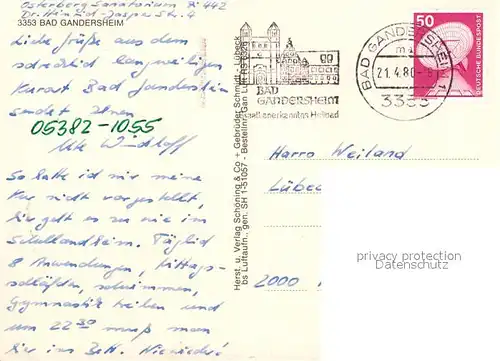 Osterberg Sanatorium Zi 442
Dr. Heinrich-Jasper Str. 4
3353 BAD GANDERSHEIM
Liebe Grüße aus dem
schrecklich langweiligen
Kurort Bad Gandersheim
sendet Ihnen
05382-1055
Ute
So hatte ich mir meine
Kur nicht vorgestellt,
hier geht es zu wie im
Schullandheim. Täglich
8 Anwendungen, Mittags-
schläfchen, schwimmen,
Gymnastik treiben und
um 22 30 muß man
hier ins Bett.
Herst. u. Verlag Schöning & Co + Gebrüder Schmidt, Lübeck
bs Luftaufn., gen. SH 1-51057 - Bestellnr. Gan
BAD
GANDERSHEIM
staatl. anerkanntes Heilbad
BAD GANDERSHEIM 1
21.4.80
3353
50
DEUTSCHE BUNDESPOST
Harro Weiland
Lübe
2000
privacy protection
Datenschutz